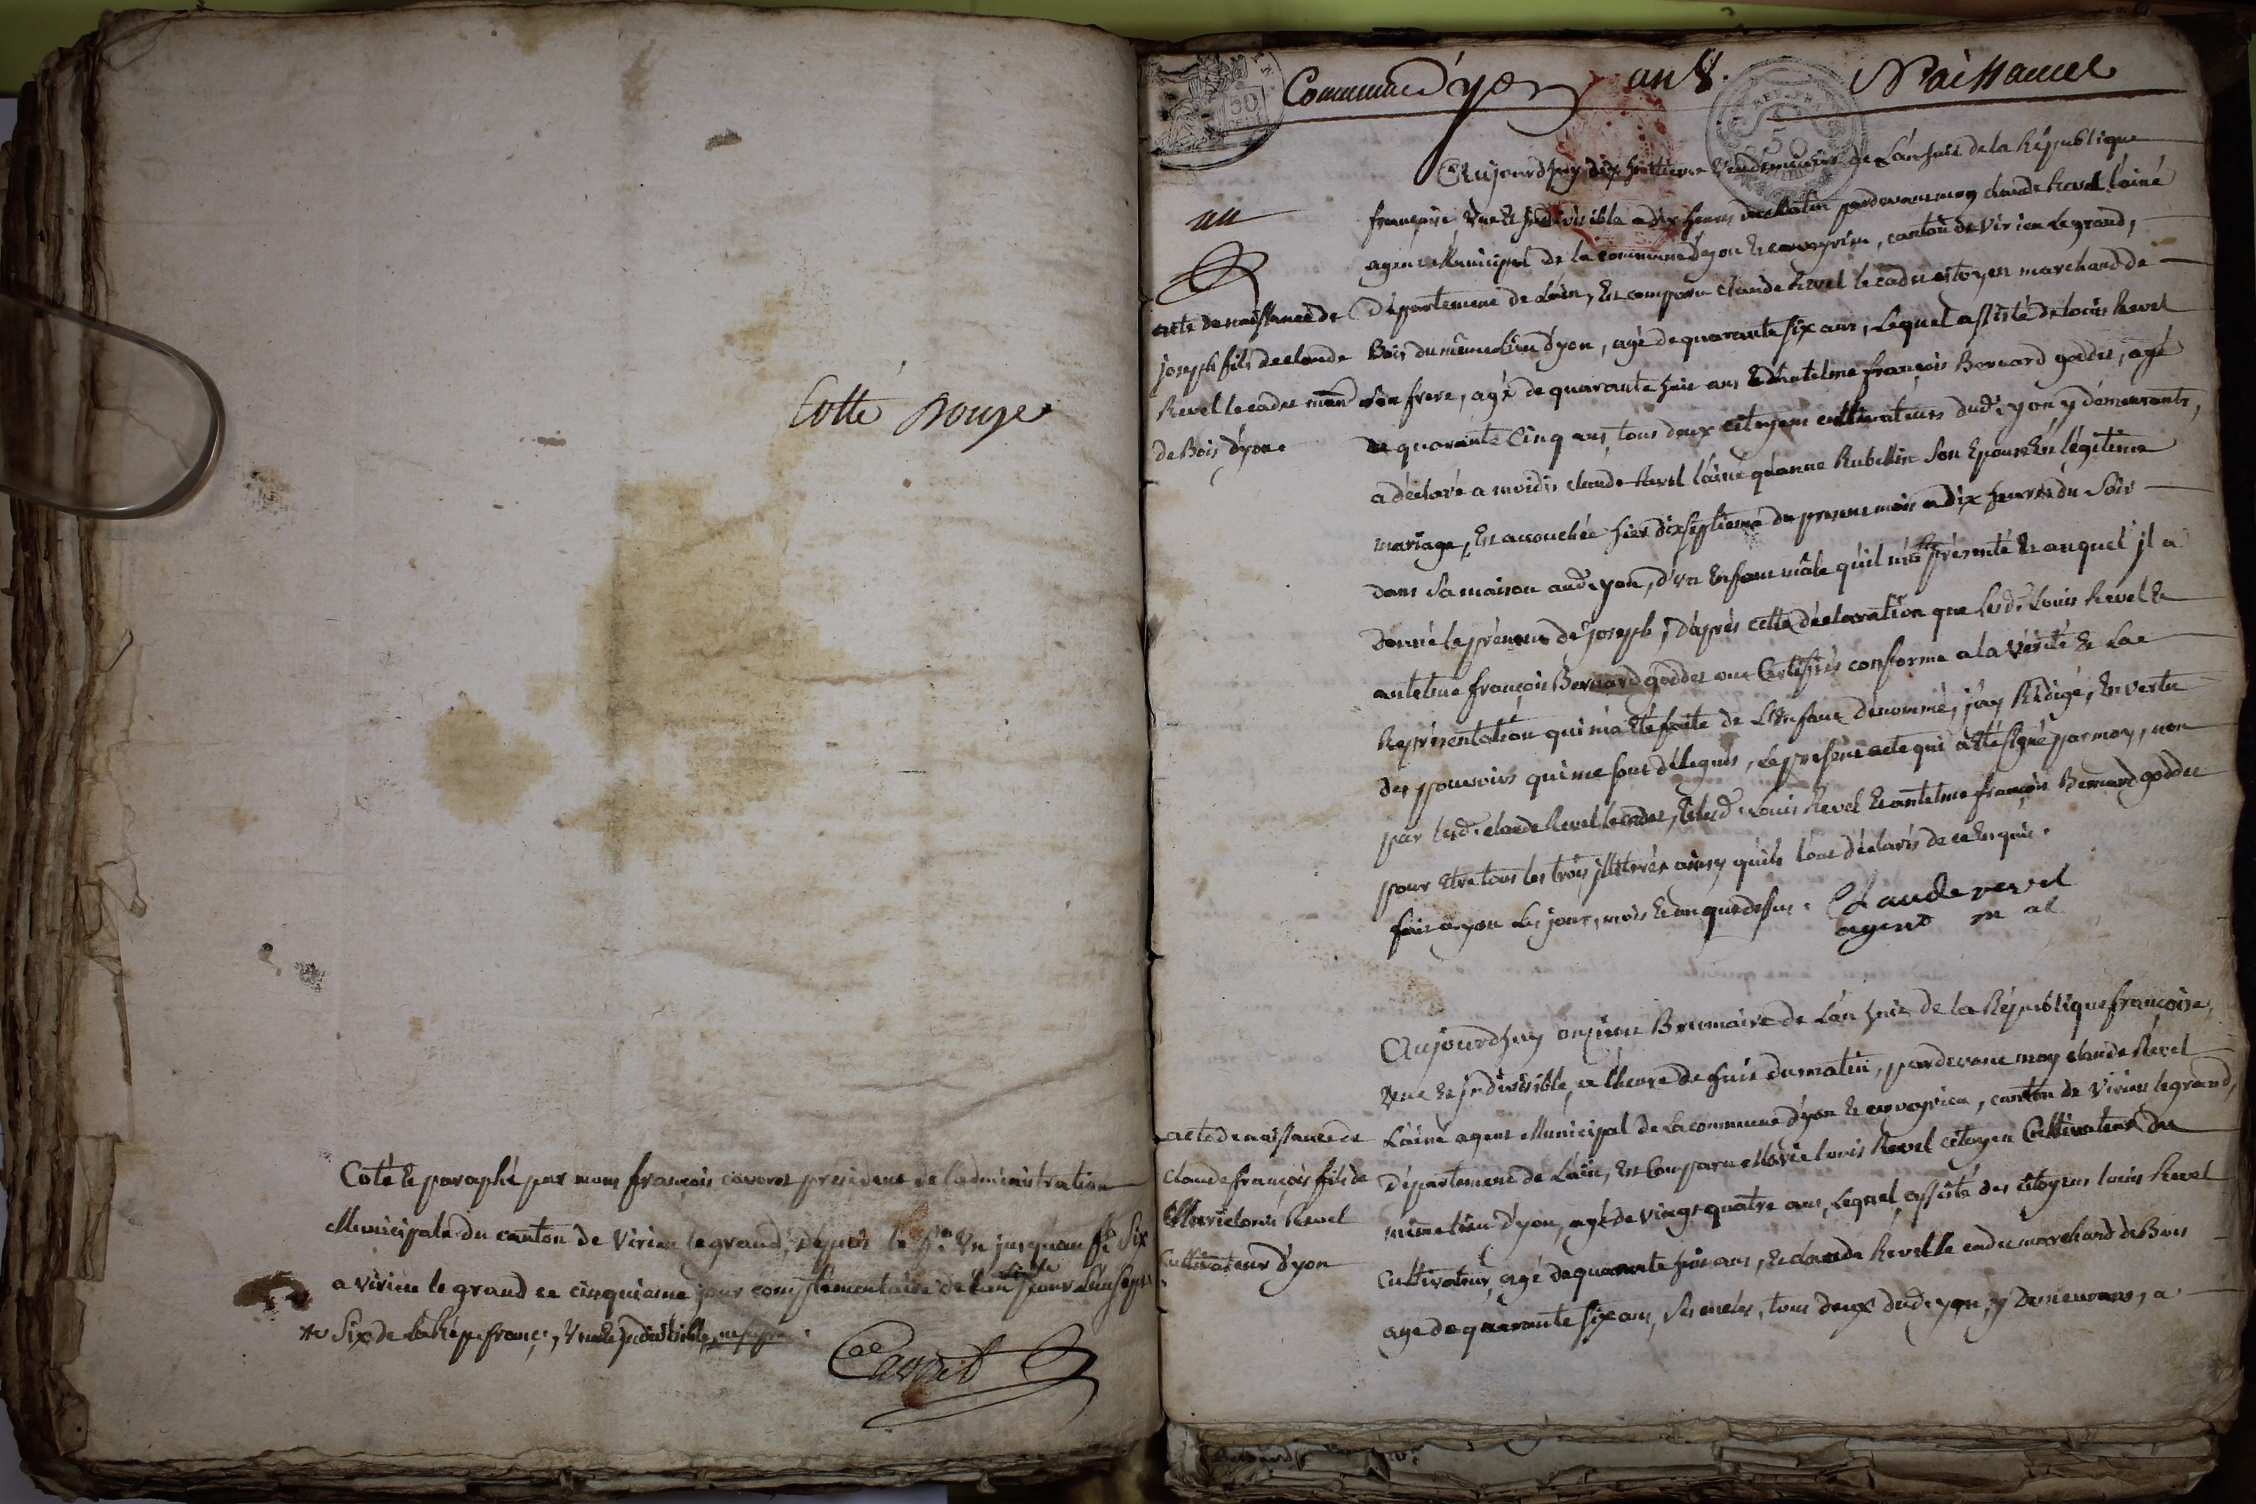 Cotte Douze
Coté & paraphé par nous françois cavorot president de l'administration
Municipale du canton de Virieu le grand, depuis le f.o Un jusqu'au f.o Six
a virieu le grand ce cinquieme jour complementaire de l'an sept
de la Rep. franc.e, Une & Indivisible
Commune d'yon an 8. Naissances
un
Aujourdhuy dix huitieme Vendemiaire de L'an huit de la République
françoise, Une Et Indivisible a dix heures du Matin pardevant moy claude Revel l'ainé
agent Municipal de la commune d'yon & cerveyrieu, canton de Virieu Legrand,
Département de L'ain, Est comparu claude Revel le cadet citoyen marchand de
Bois du même Lieu d'yon, agé de quarante six ans, Lequel assisté de Louis Revel
son frere, agé de quarante huit ans & d'antelme françois Bernard goddet, agé
de quarante Cinq ans, tous deux citoyens cultivateurs dud. yon y démeurants,
a déclaré a moidit claude Revel l'ainé qu'anne Rubellin Son Epouse En légitime
mariage, Est accouchée hier dix septieme du present mois a dix heures du Soir
dans Sa maison aud. yon, d'un Enfant mâle qu'il m'a présenté & auquel jl a
donné le prénom de joseph, D'après cette déclaration que lesd. Louis Revel &
antelme françois Bernard goddet ont Certifiés conforme a la Vérité & La
Représentation qui m'a été faite de L'Enfant dénommé, j'ay Rédigé, En vertu
des pouvoirs qui me sont délegués, Le present acte qui a été Signé par moy, non
par led. claude Revel le cadet, & lesd. Louis Revel & antelme françois Bernard goddet
pour être tous les trois jllitérés ainsy qu'ils l'ont déclarés de ce Enquis.
fait a yon Les jour, mois & an que dessus. Claude revel
agent m al
acte de naissance de
joseph fils de claude
Revel le cadet mand
de Bois d'yon.
Aujourdhuy onzieme Brumaire de L'an huit de la République françoise,
Une & Indivisible, a l'heure de huit du matin, pardevant moy claude Revel
L'ainé agent Municipal de La commune d'yon & cerveyrieu, canton de Virieu legrand,
Département de L'ain, Est Comparu Marie Louis Revel citoyen Cultivateur du
même lieu d'yon, agé de vingt quatre ans, Lequel, assisté des citoyens Louis Revel
Cultivateur, agé de quarante huit ans, & claude Revel le cadet marchand de Bois
agé de quarante six ans, Ses oncles, tous deux dud. yon, y Demeurans, a
acte de naissance de
Claude françois fils de
Marie Louis Revel
Cultivateur d'yon